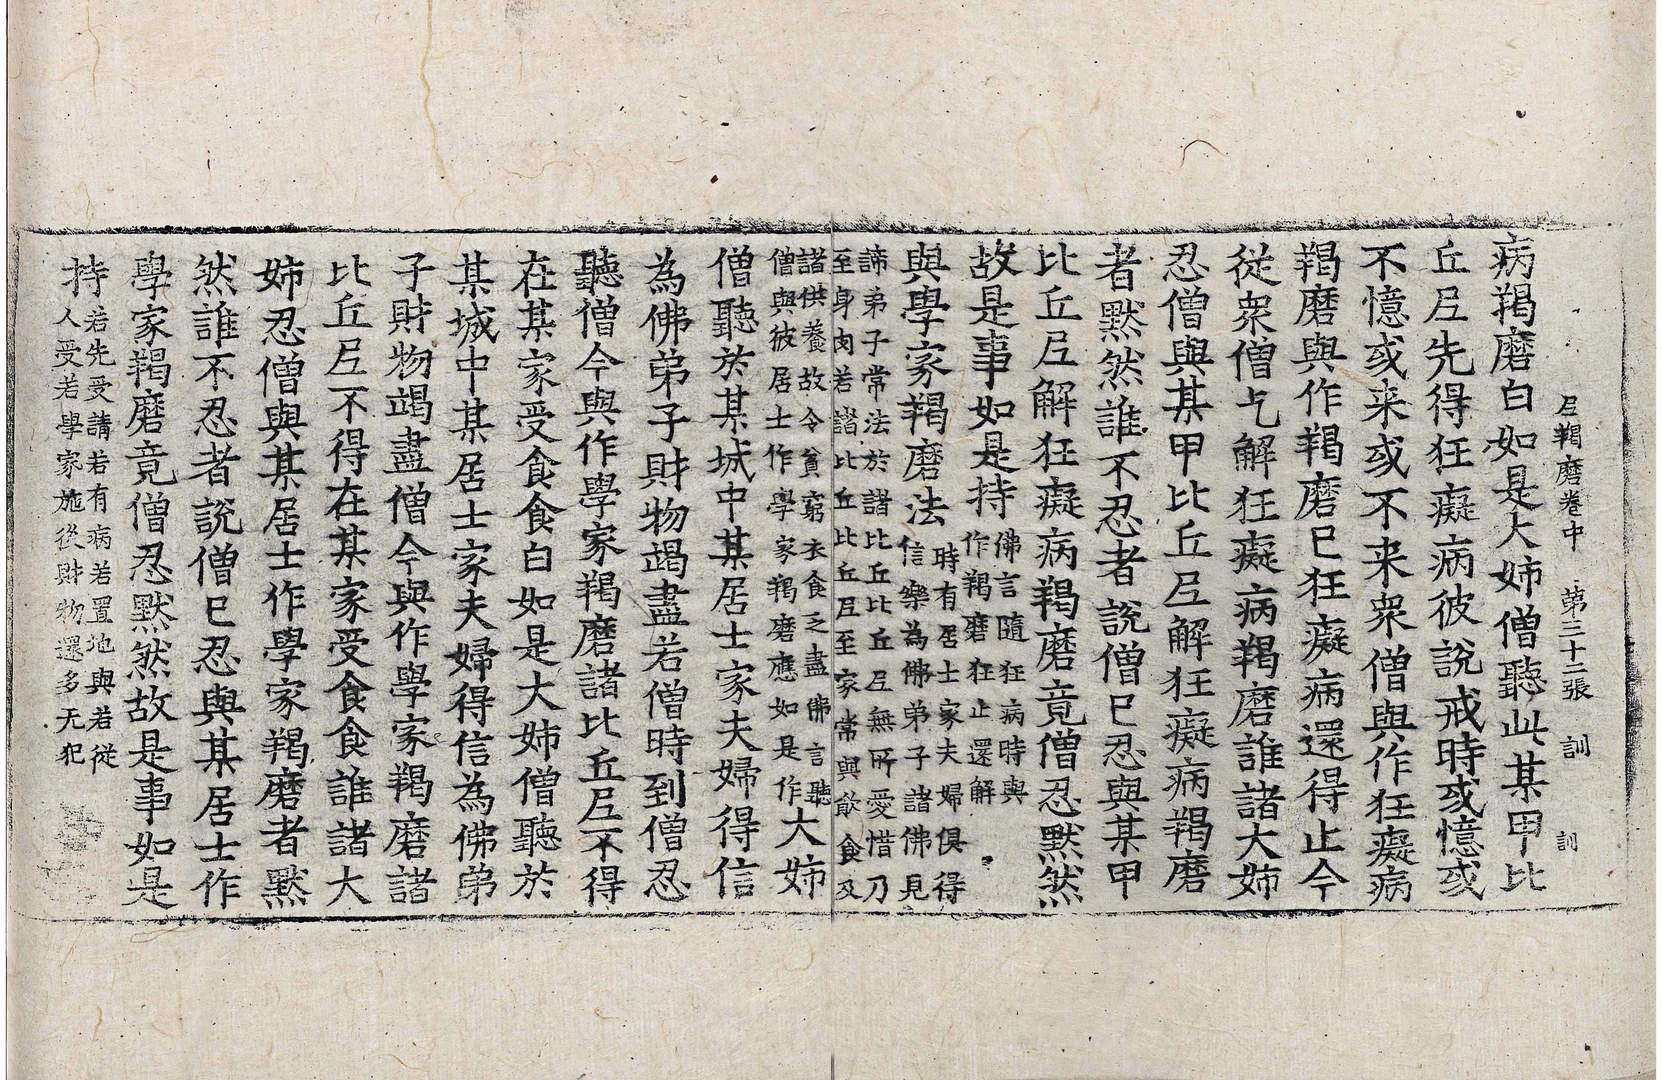 尼羯磨卷中 第三十二張 訓
訓
病羯磨白如是大姉僧聽此某甲比
丘尼先得狂癡病彼說戒時或憶或
不憶或来或不来衆僧與作狂癡病
羯磨與作羯磨已狂癡病還得止今
從衆僧乞解狂癡病羯磨誰諸大姉
忍僧與某甲比丘尼解狂癡病羯磨
者黙然誰不忍者說僧已忍與某甲
比丘尼解狂癡病羯磨竟僧忍黙然
故是事如是持
佛言隨狂病時與
作羯磨狂止還解
與學家羯磨法
時有居士家夫婦俱得
信樂為佛弟子諸佛見
諦弟子常法於諸比丘比丘尼無所愛惜乃
至身肉若諸比丘比丘尼至家常與飮食及
諸供養故令貧窮衣食乏盡佛言聽
僧與彼居士作學家羯磨應如是作
大姉
僧聽於某城中某居士家夫婦得信
為佛弟子財物竭盡若僧時到僧忍
聽僧今與作學家羯磨諸比丘尼不得
在某家受食食白如是大姉僧聽於
某城中某居士家夫婦得信為佛弟
子財物竭盡僧今與作學家羯磨諸
比丘尼不得在某家受食食誰諸大
姉忍僧與某居士作學家羯磨者黙
然誰不忍者說僧已忍與某居士作
學家羯磨竟僧忍黙然故是事如是
持
若先受請若有病若置地與若從
人受若學家施後財物還多无犯